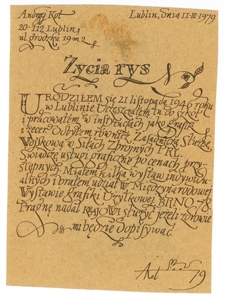 Andrzej Kot
Lublin, dnia 11-III-1979
20-112 Lublin
ul. grodzka 19 m 2
Życia rys
URODZIŁEM się 21 listopada 1946 roku
w Lublinie
i pracowałem w instytucjach jako grafik
i zecer. Odbyłem również Zasadniczą Służbę
Wojskową w Siłach Zbrojnych PRL.
Świadczę usługi graficzne po cenach przy-
stępnych. Miałem kilka wystaw indywidu-
alnych i brałem udział w Międzynarodowej
Wystawie Grafiki Użytkowej BRNO,78
Pragnę nadal KRAJOWI służyć jeżeli zdrowie
mi będzie dopisywać
79